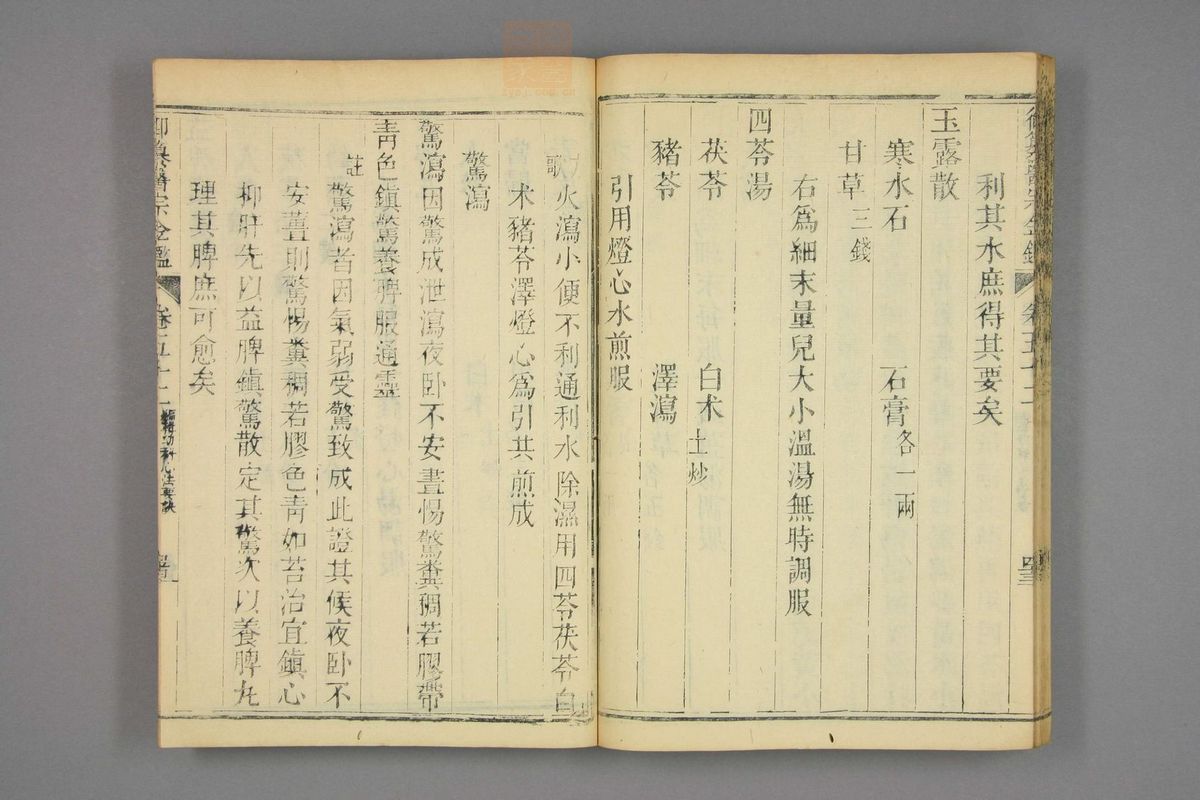 御纂醫宗金鑑 卷五十二 四三
利其水庶得其要矣
玉露散
寒水石 石膏各一兩
甘草三錢
右爲細末量兒大小溫湯無時調服
四苓湯
茯苓 白朮土炒
豬苓 澤瀉
引用燈心水煎服
方歌 火瀉小便不利通利水除濕用四苓茯苓白
朮豬苓澤燈心爲引共煎成
驚瀉
驚瀉因驚成泄瀉夜卧不安晝惕驚糞稠若膠帶
青色鎮驚養脾服通靈
註 驚瀉者因氣弱受驚致成此證其候夜卧不
安晝則驚惕糞稠若膠色青如苔治宜鎮心
抑肝先以益脾鎮驚散定其驚次以養脾丸
理其脾庶可愈矣
御纂醫宗金鑑 卷五十二 編輯幼科心法要訣